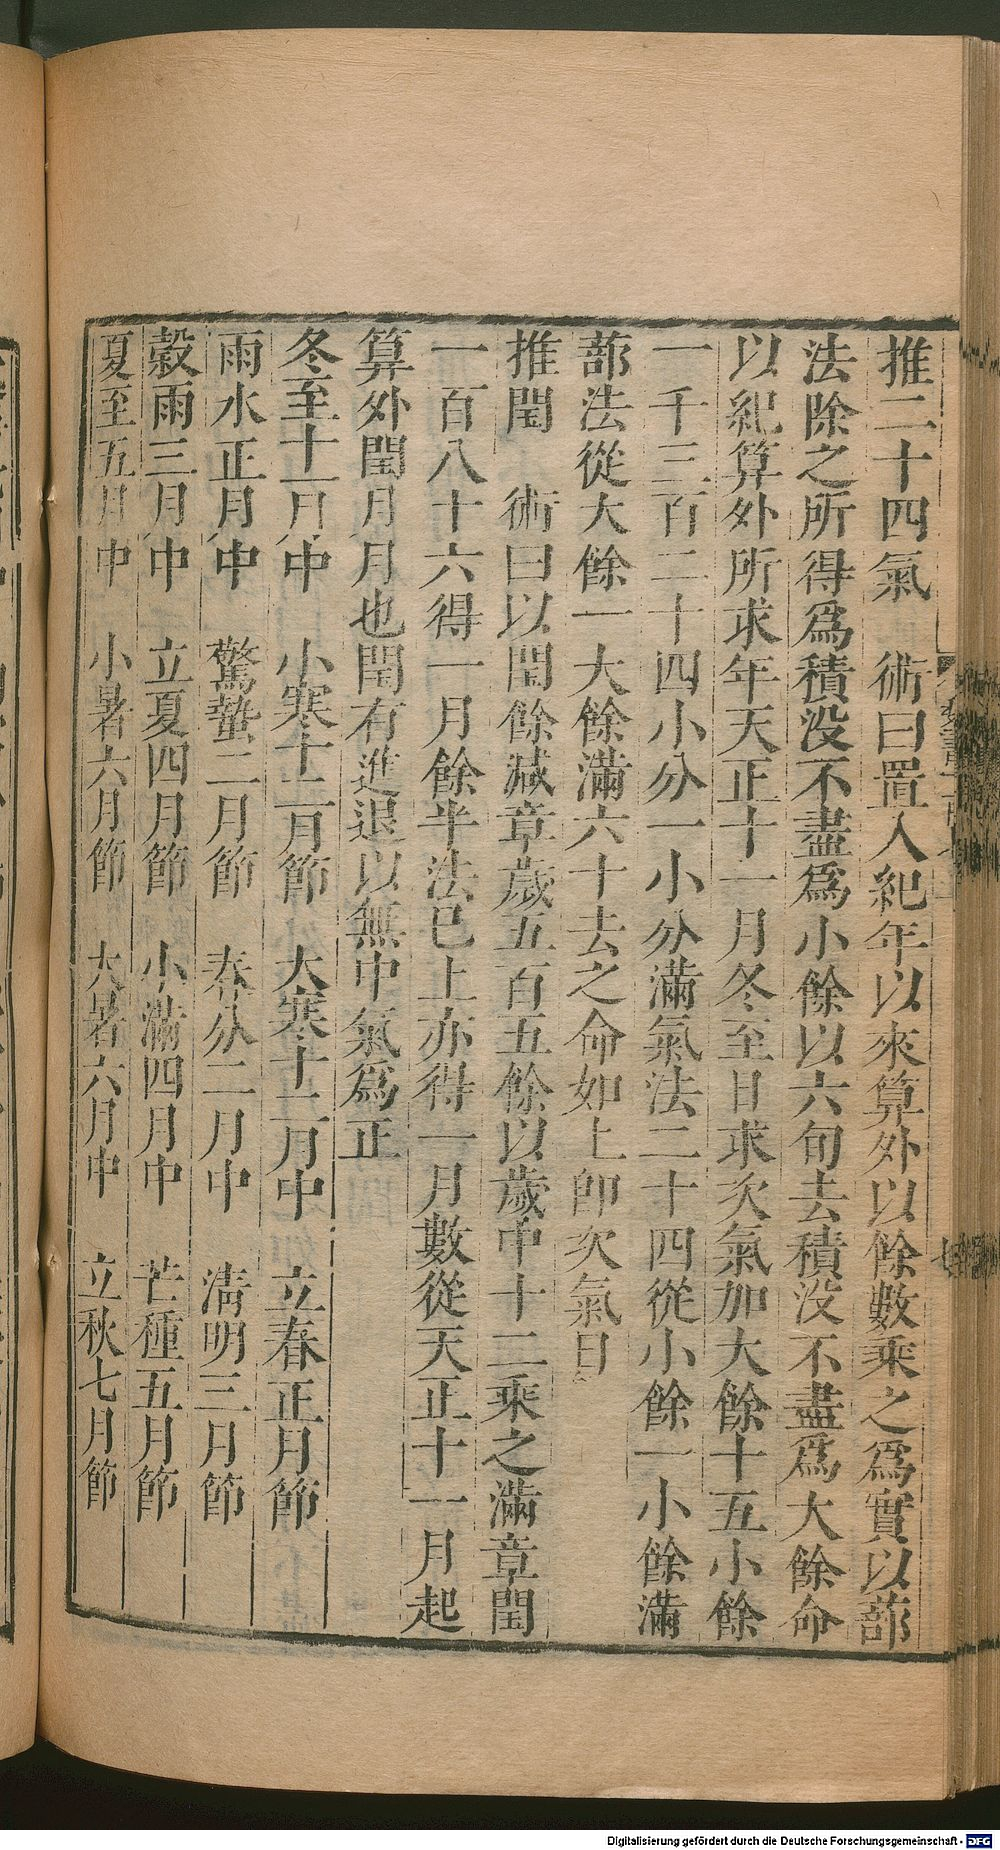 推二十四氣　術曰置入紀年以來算外以餘數乘之爲實以蔀
法除之所得爲積没不盡爲小餘以六旬去積没不盡爲大餘命
以紀算外所求年天正十一月冬至日求次氣加大餘十五小餘
一千三百二十四小分一小分滿氣法二十四從小餘一小餘滿
蔀法從大餘一大餘滿六十去之命如上卽次氣日
推閏　術曰以閏餘減章歲五百五餘以歲中十二乘之滿章閏
一百八十六得一月餘半法已上亦得一月數從天正十一月起
算外閏月月也閏有進退以無中氣爲正
冬至十一月中　小寒十二月節　大寒十二月中　立春正月節
雨水正月中　驚蟄二月節　春分二月中　淸明三月節
穀雨三月中　立夏四月節　小滿四月中　芒種五月節
夏至五月中　小暑六月節　大暑六月中　立秋七月節
Digitalisierung gefördert durch die Deutsche Forschungsgemeinschaft - DFG